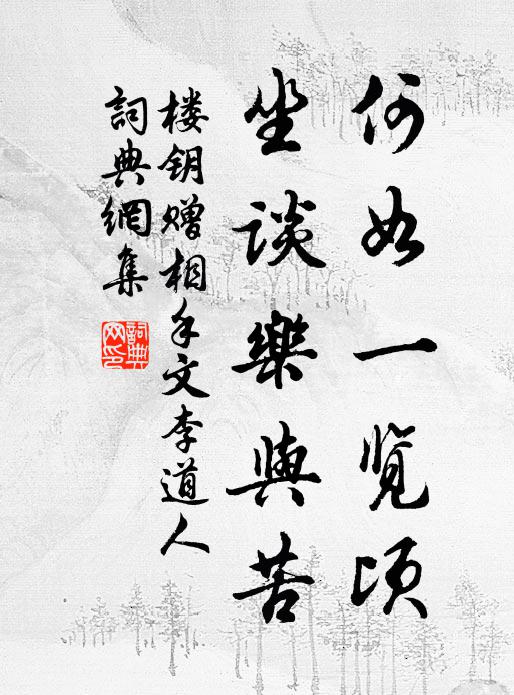 何如一览顷
坐谈樂與苦
楼钥赠相手文李道人
詞典網集
詞典网印